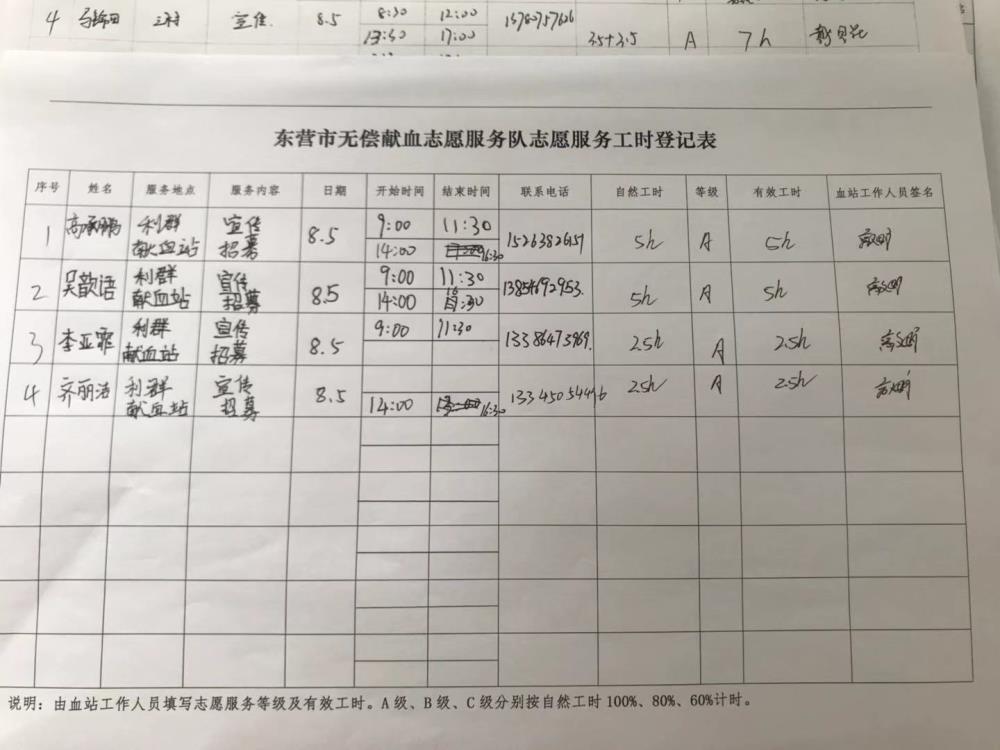 4 三村 宣传 8.5 8:30 12:00 13780757626
13:30 17:00 3.5+3.5 A 7h
东营市无偿献血志愿服务队志愿服务工时登记表
序号 姓名 服务地点 服务内容 日期 开始时间 结束时间 联系电话 自然工时 等级 有效工时 血站工作人员签名
1 高承鹏 利群 宣传 8.5 9:00 11:30 15263826157 5h A 5h
献血站 招募 14:00 16:30
2 吴歆语 利群 宣传 8.5 9:00 11:30 13854692953. 5h A 5h
献血站 招募 14:00 16:30
3 李亚霏 利群 宣传 8.5 9:00 11:30 13386473969. 2.5h A 2.5h
献血站 招募
4 齐丽洁 利群 宣传 8.5 2.5h A 2.5h
献血站 招募 14:00 16:30
说明：由血站工作人员填写志愿服务等级及有效工时。A 级、B 级、C 级分别按自然工时 100%、80%、60%计时。